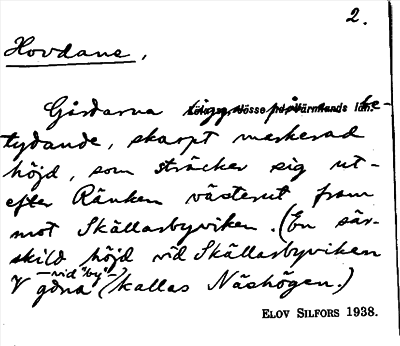 2.
Hovdane,
Gårdarna ligga på en be-
tydande, skarpt markerad
höjd, som sträcker sig ut-
efter Ränken västerut fram
mot Skällarbyviken. (En sär-
skild höjd vid Skällarbyviken
V gdna — vid "by" — kallas Näshögen.)
ELOV SILFORS 1938.